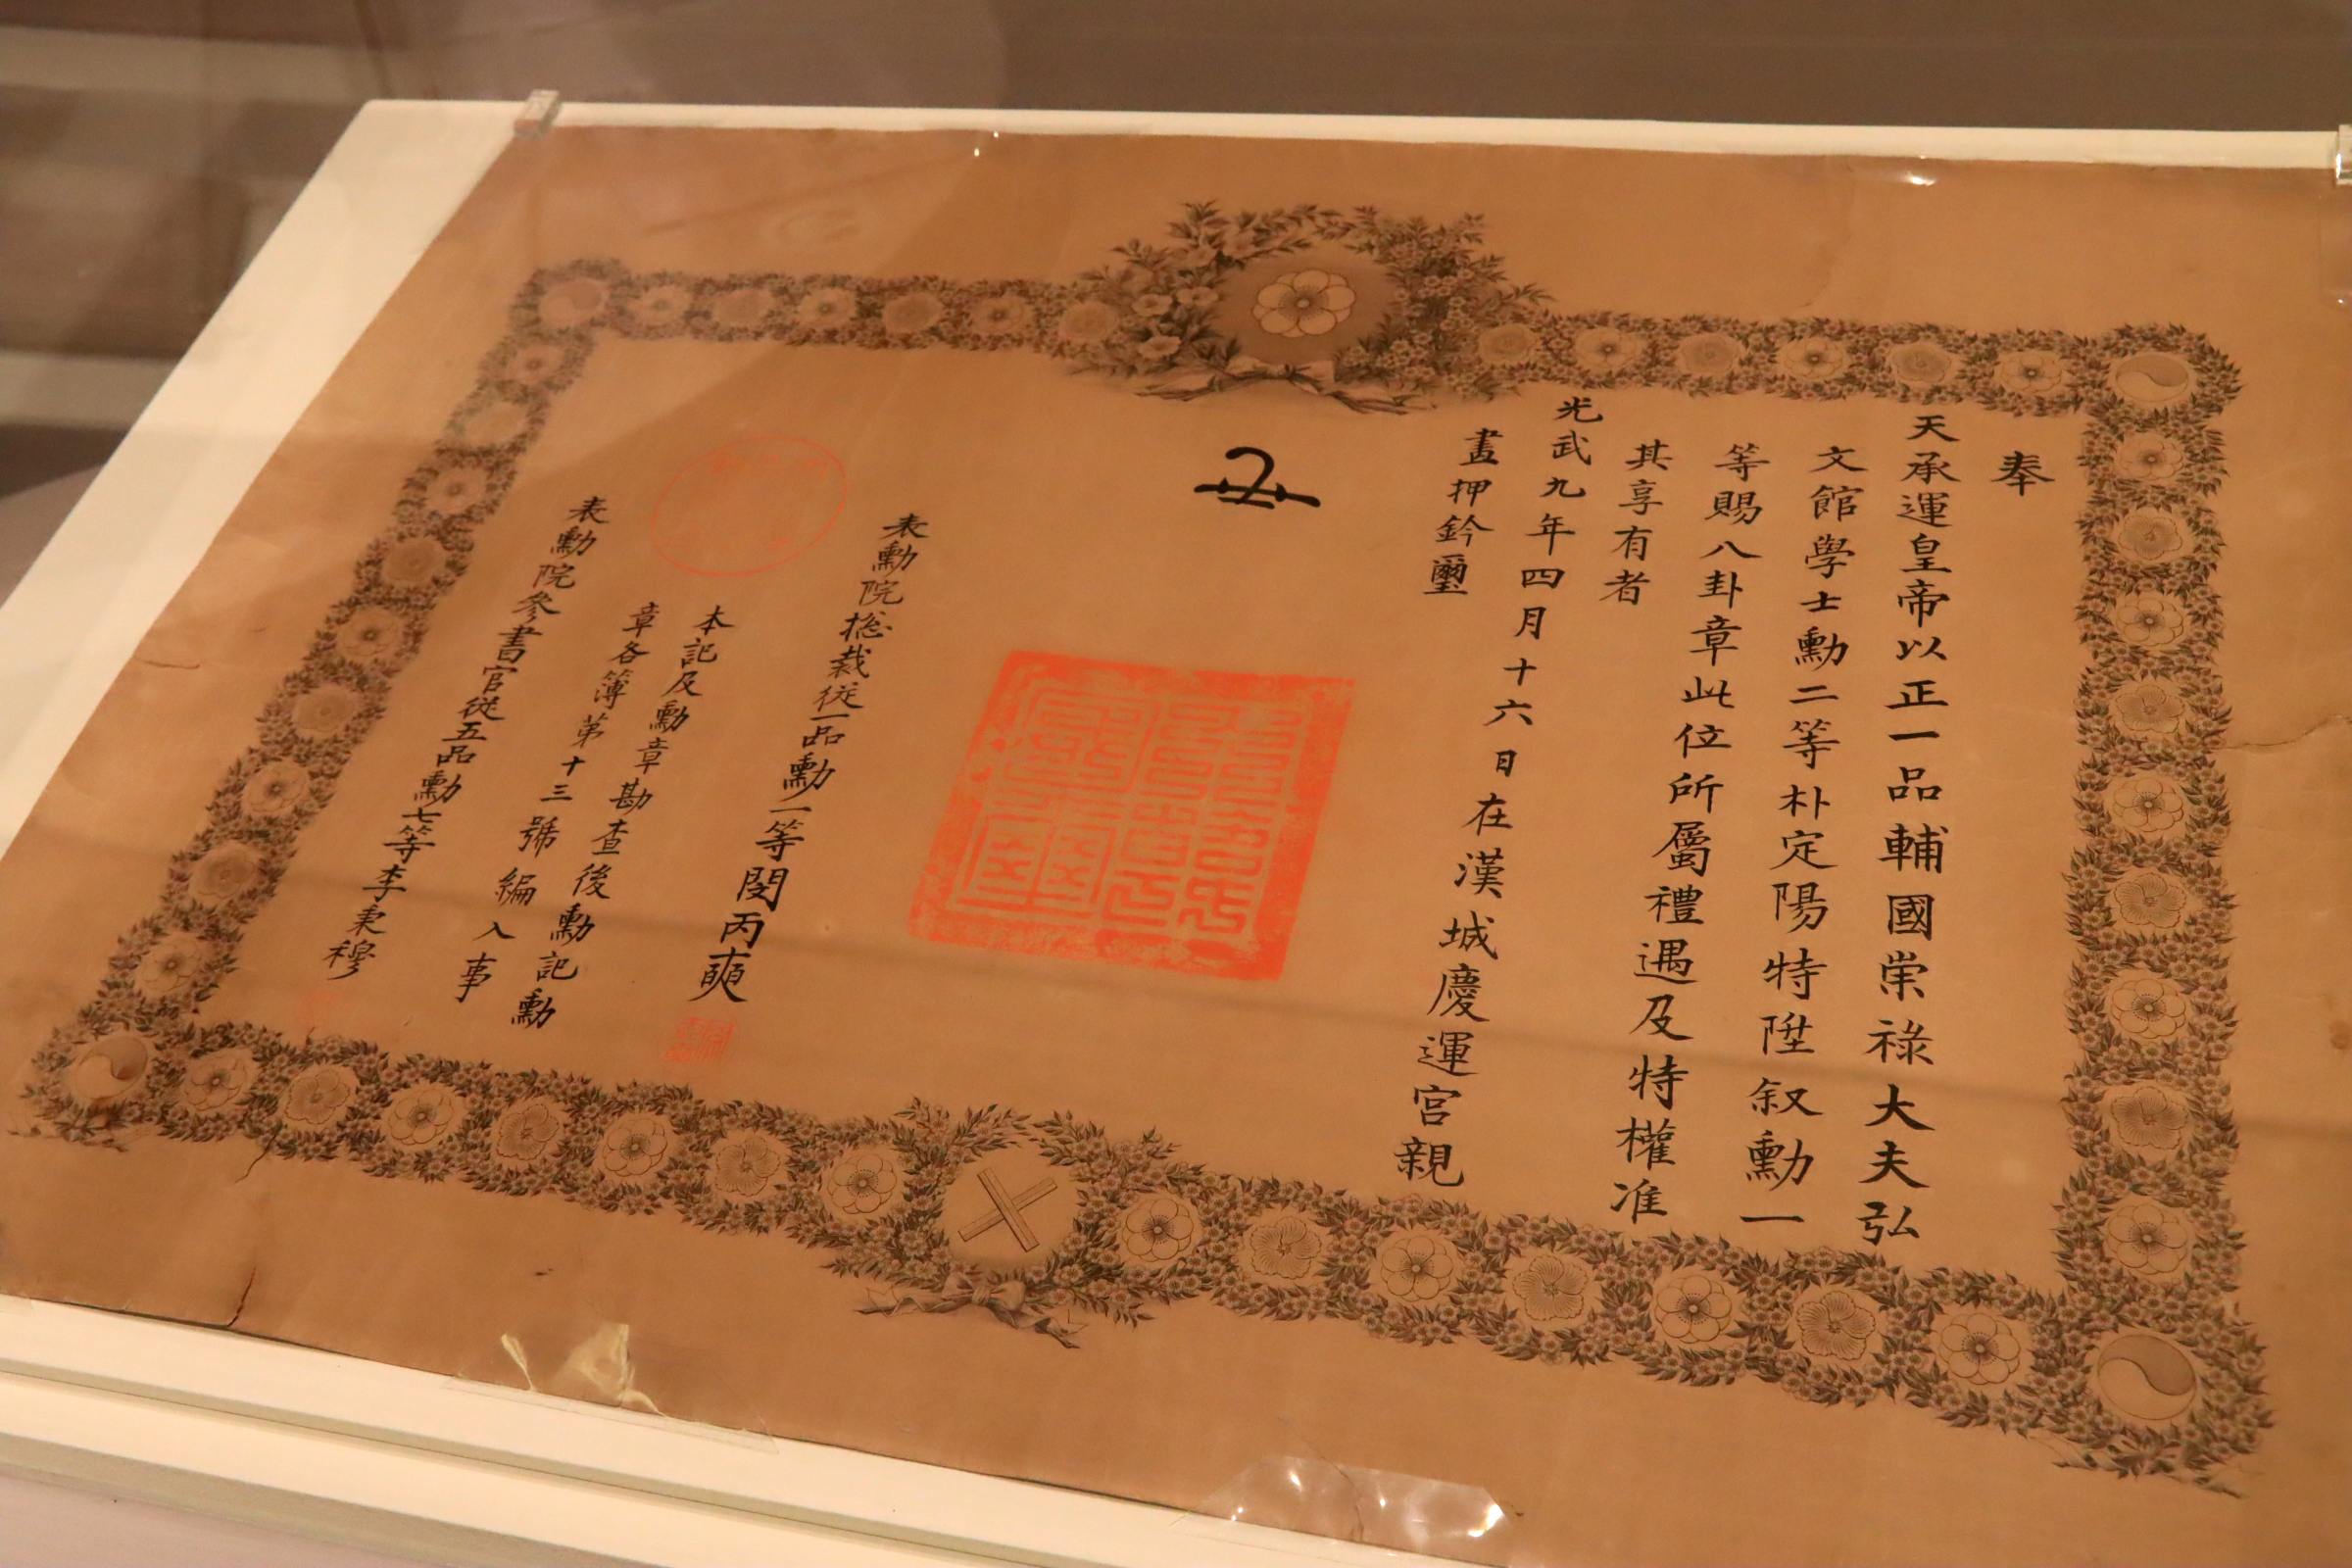 奉
天承運皇帝以正一品輔國崇祿大夫弘
文館學士勳二等朴定陽特陞叙勳一
等賜八卦章此位所屬禮遇及特權准
其享有者
光武九年四月十六日在漢城慶運宮親
畫押鈐璽
表勳院捴裁從一品勳一等閔丙奭
本記及勳章勘查後勳記勳
章各簿第十三號編入事
表勳院參書官從五品勳七等李秉穆